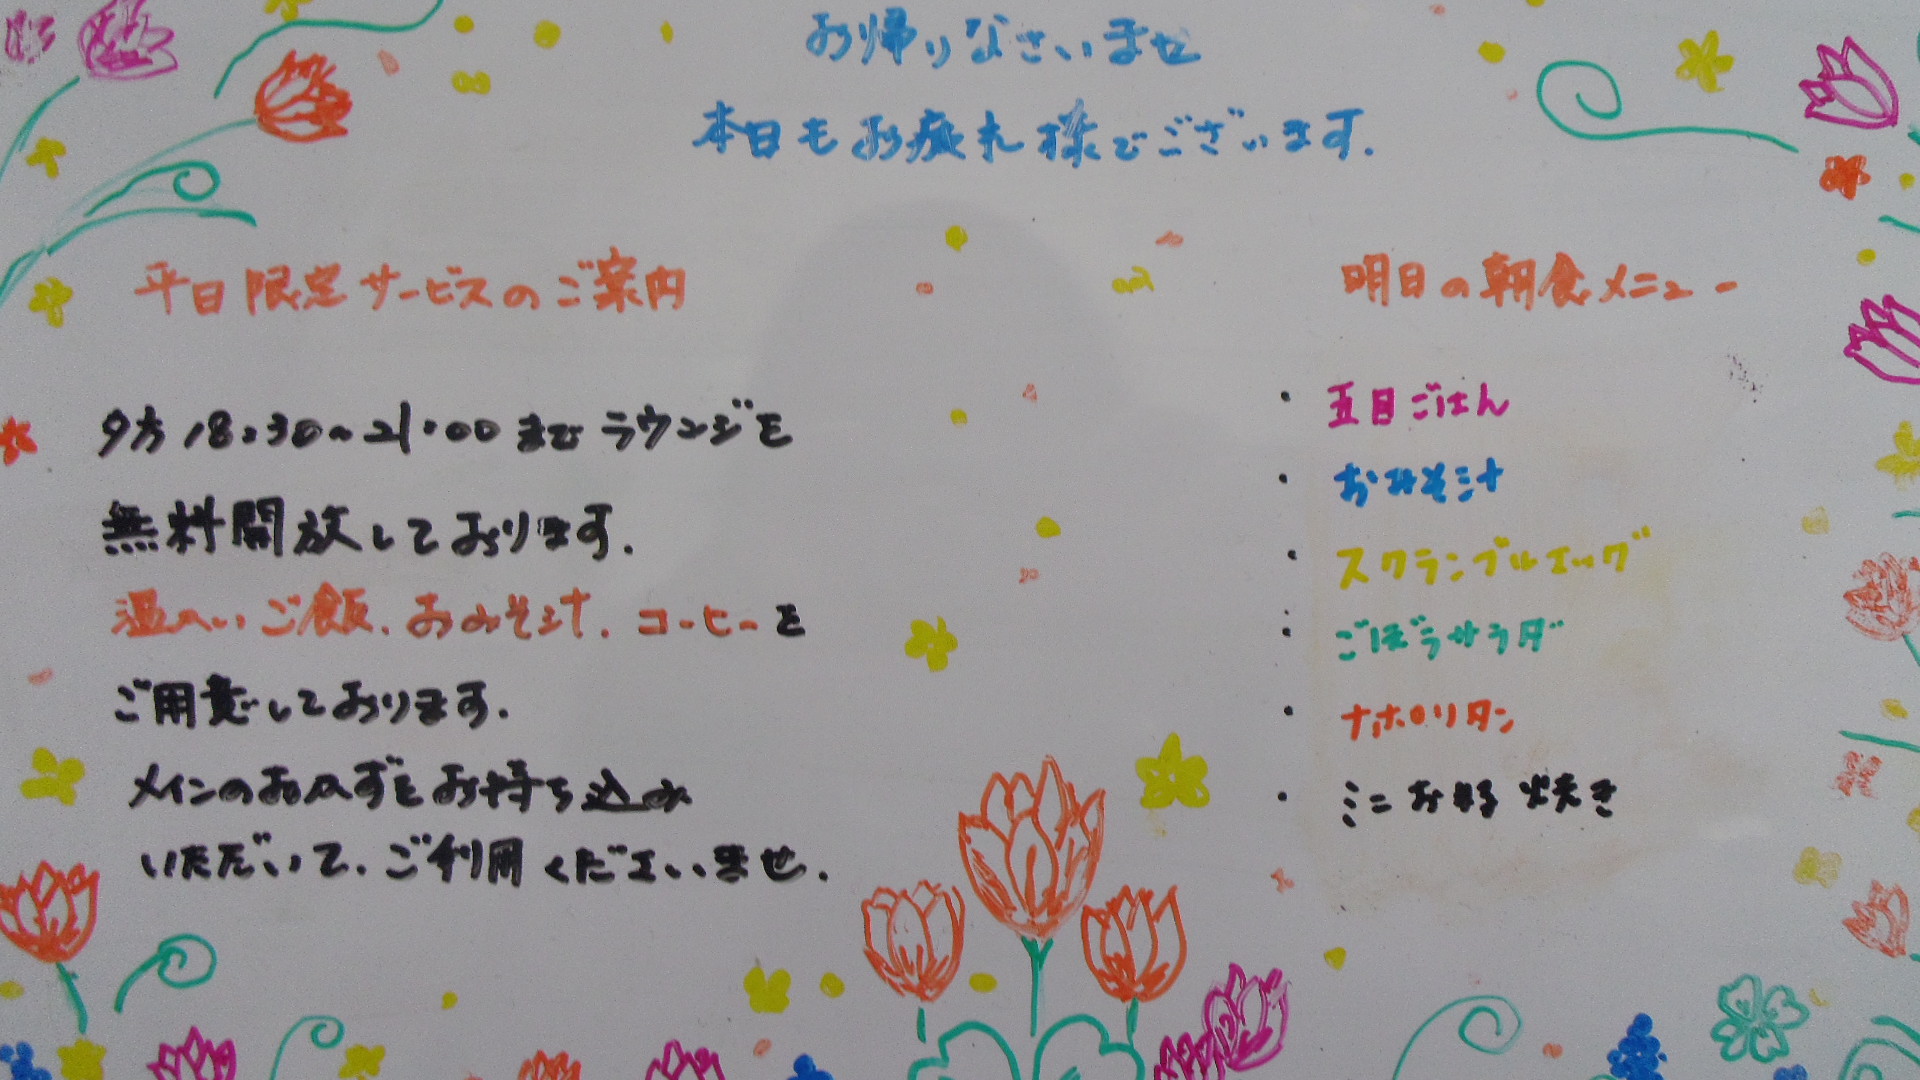 お帰りなさいませ
本日もお疲れ様でございます.
平日限定サービスのご案内
夕方18:30~21:00までラウンジを
無料開放しております.
温かいご飯.おみそ汁.コーヒーを
ご用意しております.
メインのおかずをお持ち込み
いただいて.ご利用くださいませ.
明日の朝食メニュー
・五目ごはん
・おみそ汁
・スクランブルエッグ
・ごぼうサラダ
・ナポリタン
・ミニお好焼き